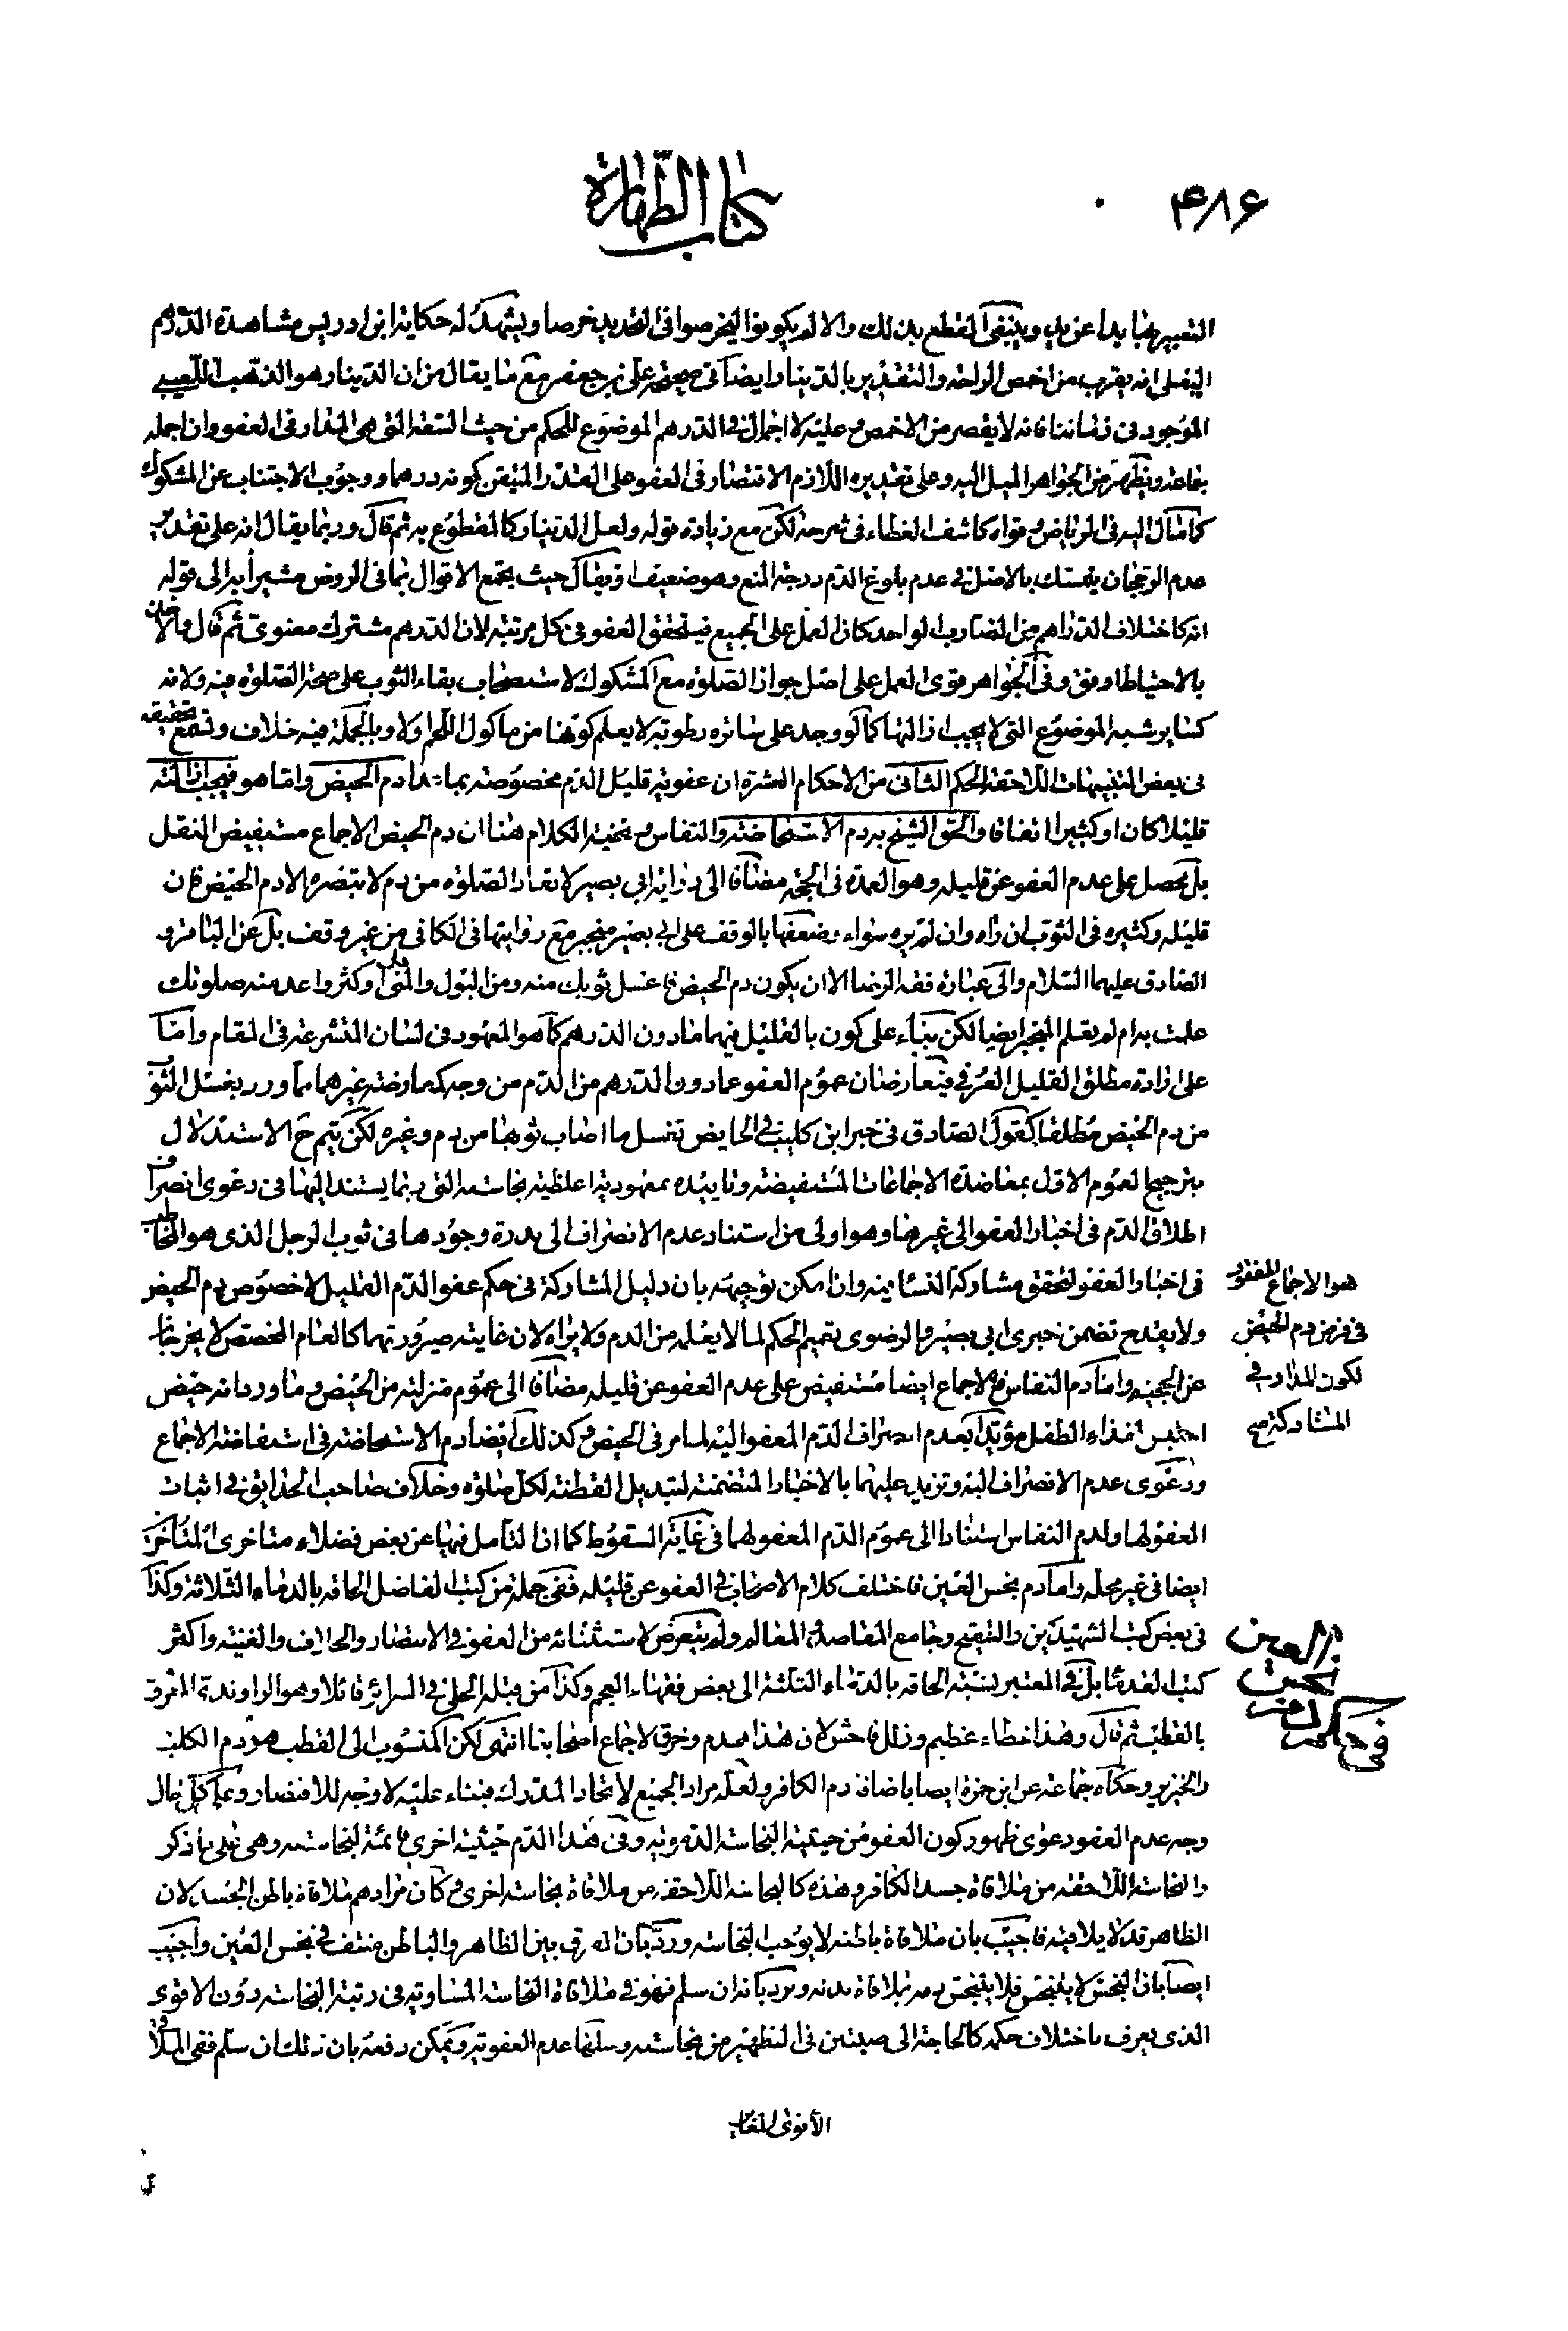 ۴۸۶
كتاب الطهارة
التعبير بها يدا عن يد وينبغى القطع بذلك والا لم يكونوا ليخرصوا فى التحديد خرصا ويشهد له حكاية ابن ادريس مشاهدة الدرهم
البغلى انه يقرب من اخمص الراحة والتقدير بالدينار ايضا فى صحيحة على بن جعفر مع ما يقال من ان الدينار هو الذهب
الموجود فى زماننا فانه لا يقصر من الاخمص وعليه لا اجمال فى الدرهم الموضوع للحكم من حيث السعة التى هى المدار فى العفو وان اجمله
جماعة ويظهر من الجواهر الميل اليه وعلى تقديره اللازم الاقتصار فى العفو على القدر المتيقن كونه درهما ووجوب الاجتناب عن المشكوك
كما مال اليه فى الرياض وقواه كاشف الغطاء فى شرحه لكن مع زيادة قوله ولعل الدينار كالمقطوع به ثم قال وربما يقال انه على تقدير
عدم الرجحان يتمسك بالاصل فى عدم بلوغ الدم درجة المنع وهو ضعيف او يقال حيث يجتمع الاقوال بما فى الروض مشيرا به الى قوله
انه كاختلاف الدراهم من الضارب الواحد كان العمل على الجميع فيتحقق العفو فى كل مرتبة لان الدرهم مشترك معنوى ثم قال والاخذ
بالاحتياط اوفق وفى الجواهر قوى العمل على اصل جواز الصلوة مع المشكوك لاستصحاب بقاء الثوب على صحة الصلوة فيه ولانه
كسائر شبه الموضوع التى لا يجب ازالتها كما لو وجد على ساتره رطوبة لا يعلم كونها من ماكول اللحم اولا وبالجملة فيه خلاف وتسمع تحقيقه
فى بعض التنبيهات اللاحقة الحكم الثانى من الاحكام العشرة ان عفوية قليل الدم مخصوصة بما عدا دم الحيض واما هو فيجب ازالته
قليلا كان او كثيرا اتفاقا والحق الشيخ به دم الاستحاضة والنفاس ونخبة الكلام هنا ان دم الحيض الاجماع مستفيض النقل
بل محصل على عدم العفو عن قليله وهو العمدة فى الحجة مضافا الى رواية ابى بصير لا تعاد الصلوة من دم لا تبصره الا دم الحيض فان
قليله وكثيره فى الثوب ان راه وان لم يره سواء وضعفها بالوقف على ابى بصير منجبر مع روايتها فى الكافى من غير وقف بل عن الباقر او
الصادق عليهما السلام والى عبارة فقه الرضا الا ان يكون دم الحيض فاغسل ثوبك منه ومن البول والمنى قل او كثر واعد منه صلوتك
علمت به ام لم تعلم المنجبر ايضا لكن بناء على كون بالقليل فيهما مادون الدرهم كما هو المعهود فى لسان المتشرعة فى المقام واما
على ارادة مطلق القليل العرفى يتعارضان عموم العفو عما دون الدرهم من الدم من وجه كمعارضة غيرهما مما ورد بغسل الثوب
من دم الحيض مطلقا كقول الصادق فى خبر ابن كليب فى الحايض تغسل ما اصاب ثوبها من دم وغيره لكن يتم ح الاستدلال
بترجيح العموم الاول بمعاضدة الاجماعات المستفيضة وتاييده بمعهودية اغلظية نجاسته التى ربما يستند اليها فى دعوى انصراف
اطلاق الدم فى اخبار العفو الى غيرها وهو اولى من استناد عدم الانصراف الى ندرة وجودها فى ثوب الرجل الذى هو المخاطب
فى اخبار العفو لتحقق مشاركة النساء فيه وان امكن توجيهه بان دليل المشاركة فى حكم عفو الدم القليل لا خصوص دم الحيض
ولا يقدح تضمن خبرى ابى بصير والرضوى تعميم الحكم لما لا يعلمه من الدم ولا يراه لان غايته صيرورتهما كالعام المخصص لا يخرجان
عن الحجية واما دم النفاس فالاجماع ايضا مستفيض على عدم العفو عن قليله مضافا الى عموم منزلته من الحيض وما ورد انه حيض
احتبس لغذاء الطفل مؤيدا بعدم انصراف الدم المعفو اليه لما مر فى الحيض وكذلك ايضا دم الاستحاضة فى استفاضة الاجماع
ودعوى عدم الانصراف اليه وتزيد عليهما بالاخبار المتضمنة لتبديل القطنة لكل صلوة وخلاف صاحب الحدائق فى اثبات
العفو لها ولدم النفاس استنادا الى عموم الدم المعفو لهما فى غاية السقوط كما ان التامل فيها عن بعض فضلاء متاخرى المتاخرين
ايضا فى غير محله واما دم نجس العين فاختلف كلام الاصحاب فى العفو عن قليله ففى جملة من كتب الفاضل الحاقه بالدماء الثلاثة وكذا
فى بعض كتب الشهيدين والتنقيح وجامع المقاصد والمعالم ولم يتعرض لاستثنائه من العفو فى الانتصار والخلاف والغنية واكثر
كتب القدماء بل فى المعتبر نسبة الحاقه بالدماء الثلثة الى بعض فقهاء العجم وكذا من قبله الحلى فى السرائر قائلا وهو الراوندى المعروف
بالقطب ثم قال وهذا خطاء عظيم وزلل فاحش لان هذا هدم وخرق لاجماع اصحابنا انتهى لكن المنسوب الى القطب هو دم الكلب
والخنزير وحكاه جماعة عن ابن حمزة ايضا باضافة دم الكافر ولعله مراد الجميع لاتحاد المدرك فبناء عليه لا وجه للاقتصار وعلى كل حال
وجه عدم العفو دعوى ظهور كون العفو من حيثية النجاسة الدموية وفى هذا الدم حيثية اخرى قائمة لنجاسته وهى على ما ذكر
والنجاسة اللاحقة من ملاقاة جسد الكافر وهذه كالنجاسة اللاحقة من ملاقاة نجاسة اخرى وكان مرادهم ملاقاة باطن الجسد لان
الظاهر قد لا يلاقيه فاجيب بان ملاقاة باطنه لا يوجب النجاسة ورد بان الفرق بين الظاهر والباطن منتف فى نجس العين واجيب
ايضا بان النجس لا يتنجس فلا يتنجس دمه بملاقاة بدنه ويرد بانه ان سلم فهو فى ملاقاة النجاسة المساوية فى رتبة النجاسة دون الاقوى
الذى يعرف باختلاف حكمه كالحاجة الى صبتين فى التطهير من نجاسته وسلبها عدم العفوية ويمكن دفعه بان ذلك ان سلم ففى الملاقى
هو الاجماع المفقود
فى دم الحيض
لكون المدار فى
المشاركة صح
نجس العين
فى حكم دم
الأقوى المغاير